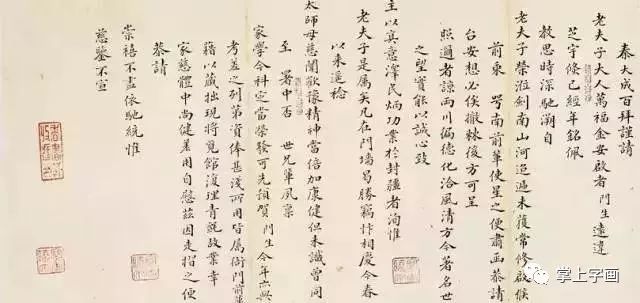 秦大成百拜謹請
老夫子大人萬福金安啟者門生違遠
芝宇條已經年銘佩
教思時深馳溯自
老夫子榮涖劍南山河迢遞未獲常修啟候
前東 岇南前輩使星之便肅函恭請
台安想必俟撤棘後方可呈
照邇者諒兩川偏德化洽風清方今著名世
之望實能以誠心致
主以真意澤民炳功業於封疆者洵惟
老夫子是屬矣凡在門墻曷勝竊忭相慶今春
以來遥稔
太師母慈闈歡豫精神當倍加康健但未識曾同
至 署中否 世兄輩夙稟
家學今科定當榮發可先頌賀門生今年六與
考差之列第資俸甚淺所用皆属衙門前輩
籍以藏拙現将覓館復理青氊故業幸
家慈體中尚健差用自慰茲因走摺之便
恭請
崇禧不盡依馳統惟
慈鑒不宣
掌上字画